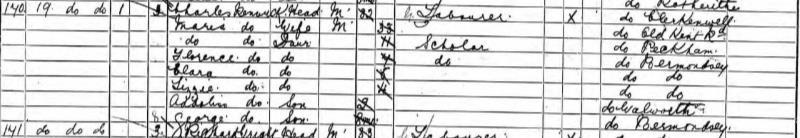 do Rotherhithe
140 19 do do 1 Charles Renwick Head M 32 Labourer X do Clerkenwell
Maria do Wife M 33 do Old Kent Rd
do do Daur Scholar do Peckham
Florence do do do do Bermondsey
Clara do do do do
Lizzie do do do do
do Son 2 do Walworth
George do Son do Bermondsey
141 do do do Head M 33 Labourer X